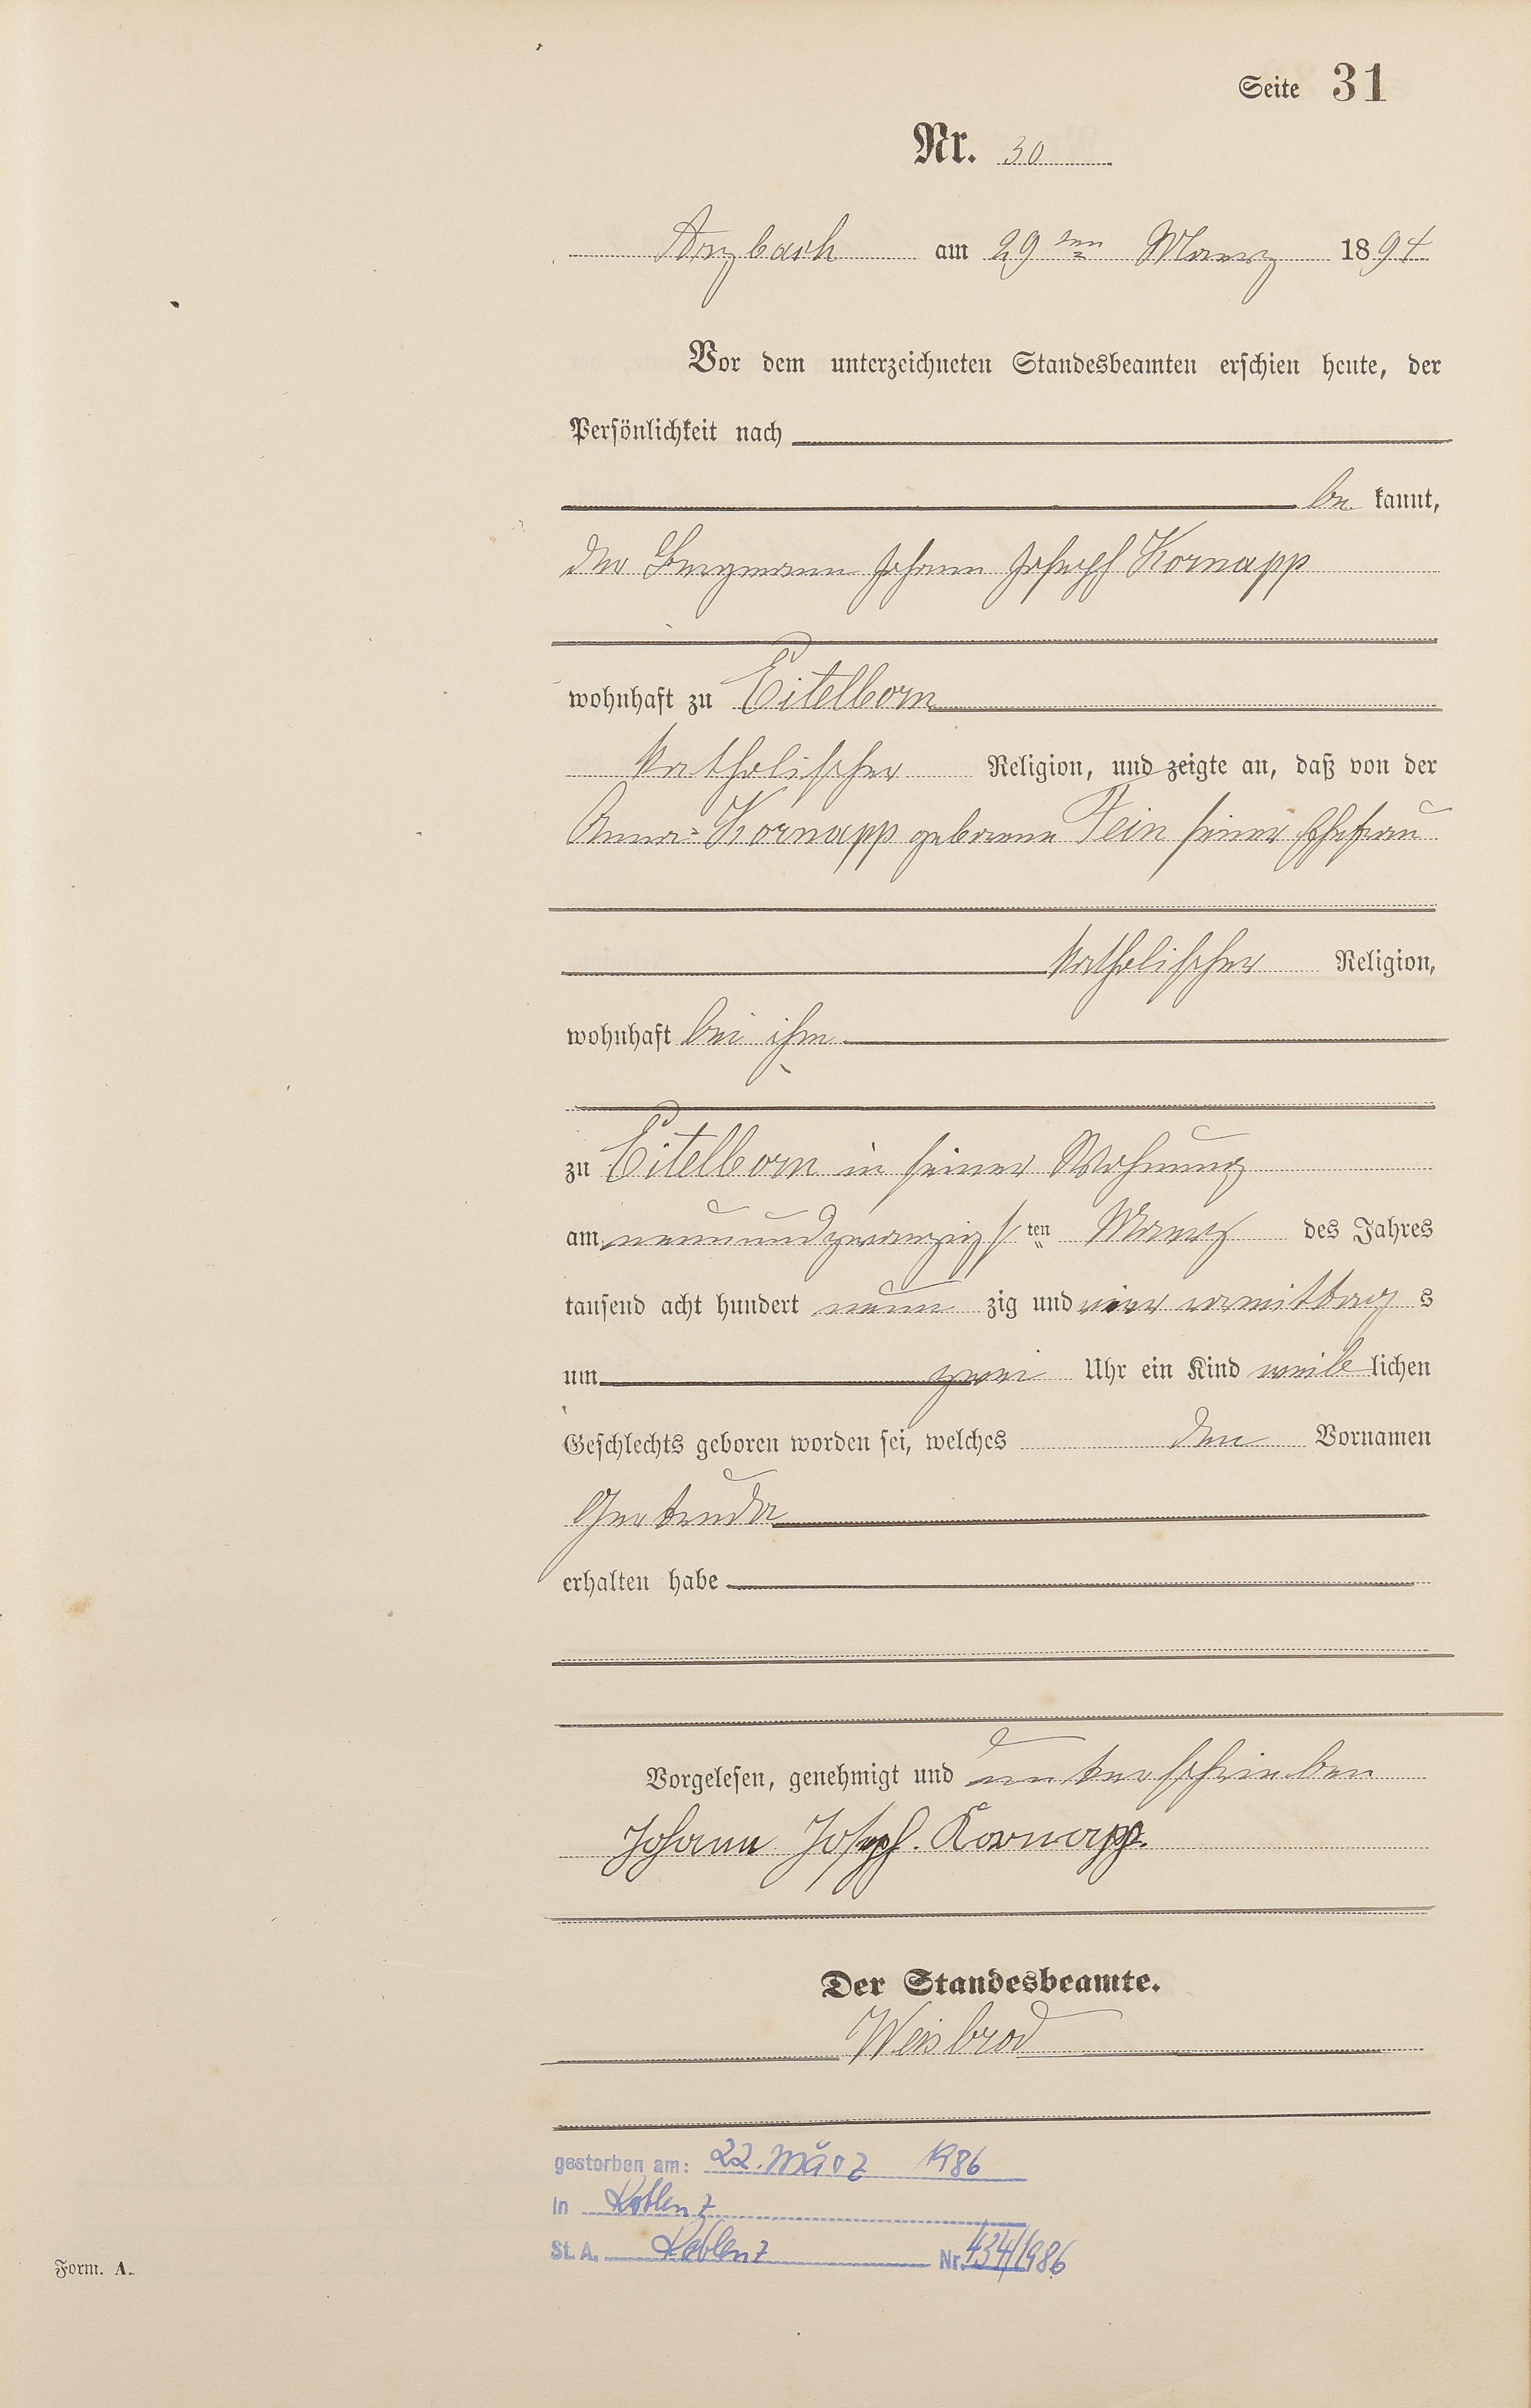 Seite 31
Nr. 30
Arzbach am 29ten Maerz 1894
Vor dem unterzeichneten Standesbeamten erschien heute, der
Persönlichkeit nach
be kannt,
der Bergmann Johann Joseph Kornapp
wohnhaft zu Eitelborn
katholischer Religion, und zeigte an, daß von der
Anna Kornapp geborene Fein seiner Ehefrau
katholischer Religion,
wohnhaft bei ihm
zu Eitelborn in seiner Wohnung
am neunundzwanzigsten Maerz des Jahres
tausend acht hundert neun zig und vier vormittag s
um zwei Uhr ein Kind weib lichen
Geschlechts geboren worden sei, welches den Vornamen
Gertruda
erhalten habe
Vorgelesen, genehmigt und unterschrieben
Johann Joseph Kornapp.
Der Standesbeamte.
Weisbrod
gestorben am: 22. März 1986
in Koblenz
St. A. Koblenz Nr. 434/1986
Form. A.